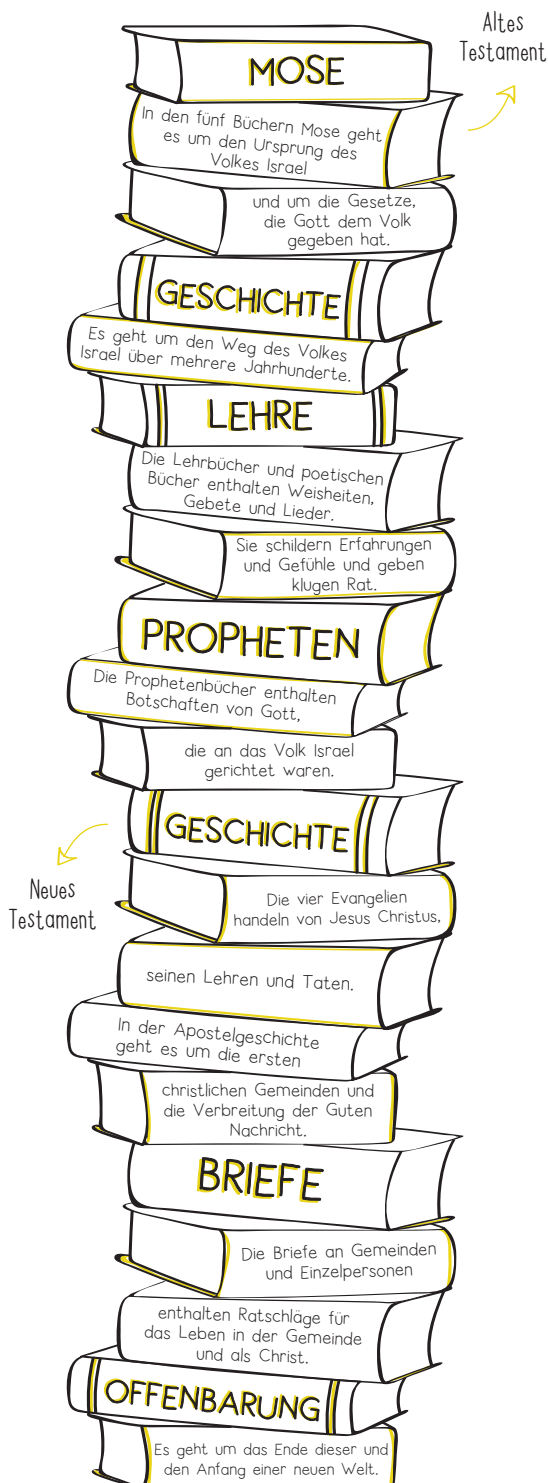 Altes
Testament
MOSE
In den fünf Büchern Mose geht
es um den Ursprung des
Volkes Israel
und um die Gesetze,
die Gott dem Volk
gegeben hat.
GESCHICHTE
Es geht um den Weg des Volkes
Israel über mehrere Jahrhunderte.
LEHRE
Die Lehrbücher und poetischen
Bücher enthalten Weisheiten,
Gebete und Lieder.
Sie schildern Erfahrungen
und Gefühle und geben
klugen Rat.
PROPHETEN
Die Prophetenbücher enthalten
Botschaften von Gott,
die an das Volk Israel
gerichtet waren.
GESCHICHTE
Neues
Testament
Die vier Evangelien
handeln von Jesus Christus,
seinen Lehren und Taten.
In der Apostelgeschichte
geht es um die ersten
christlichen Gemeinden und
die Verbreitung der Guten
Nachricht.
BRIEFE
Die Briefe an Gemeinden
und Einzelpersonen
enthalten Ratschläge für
das Leben in der Gemeinde
und als Christ.
OFFENBARUNG
Es geht um das Ende dieser und
den Anfang einer neuen Welt.